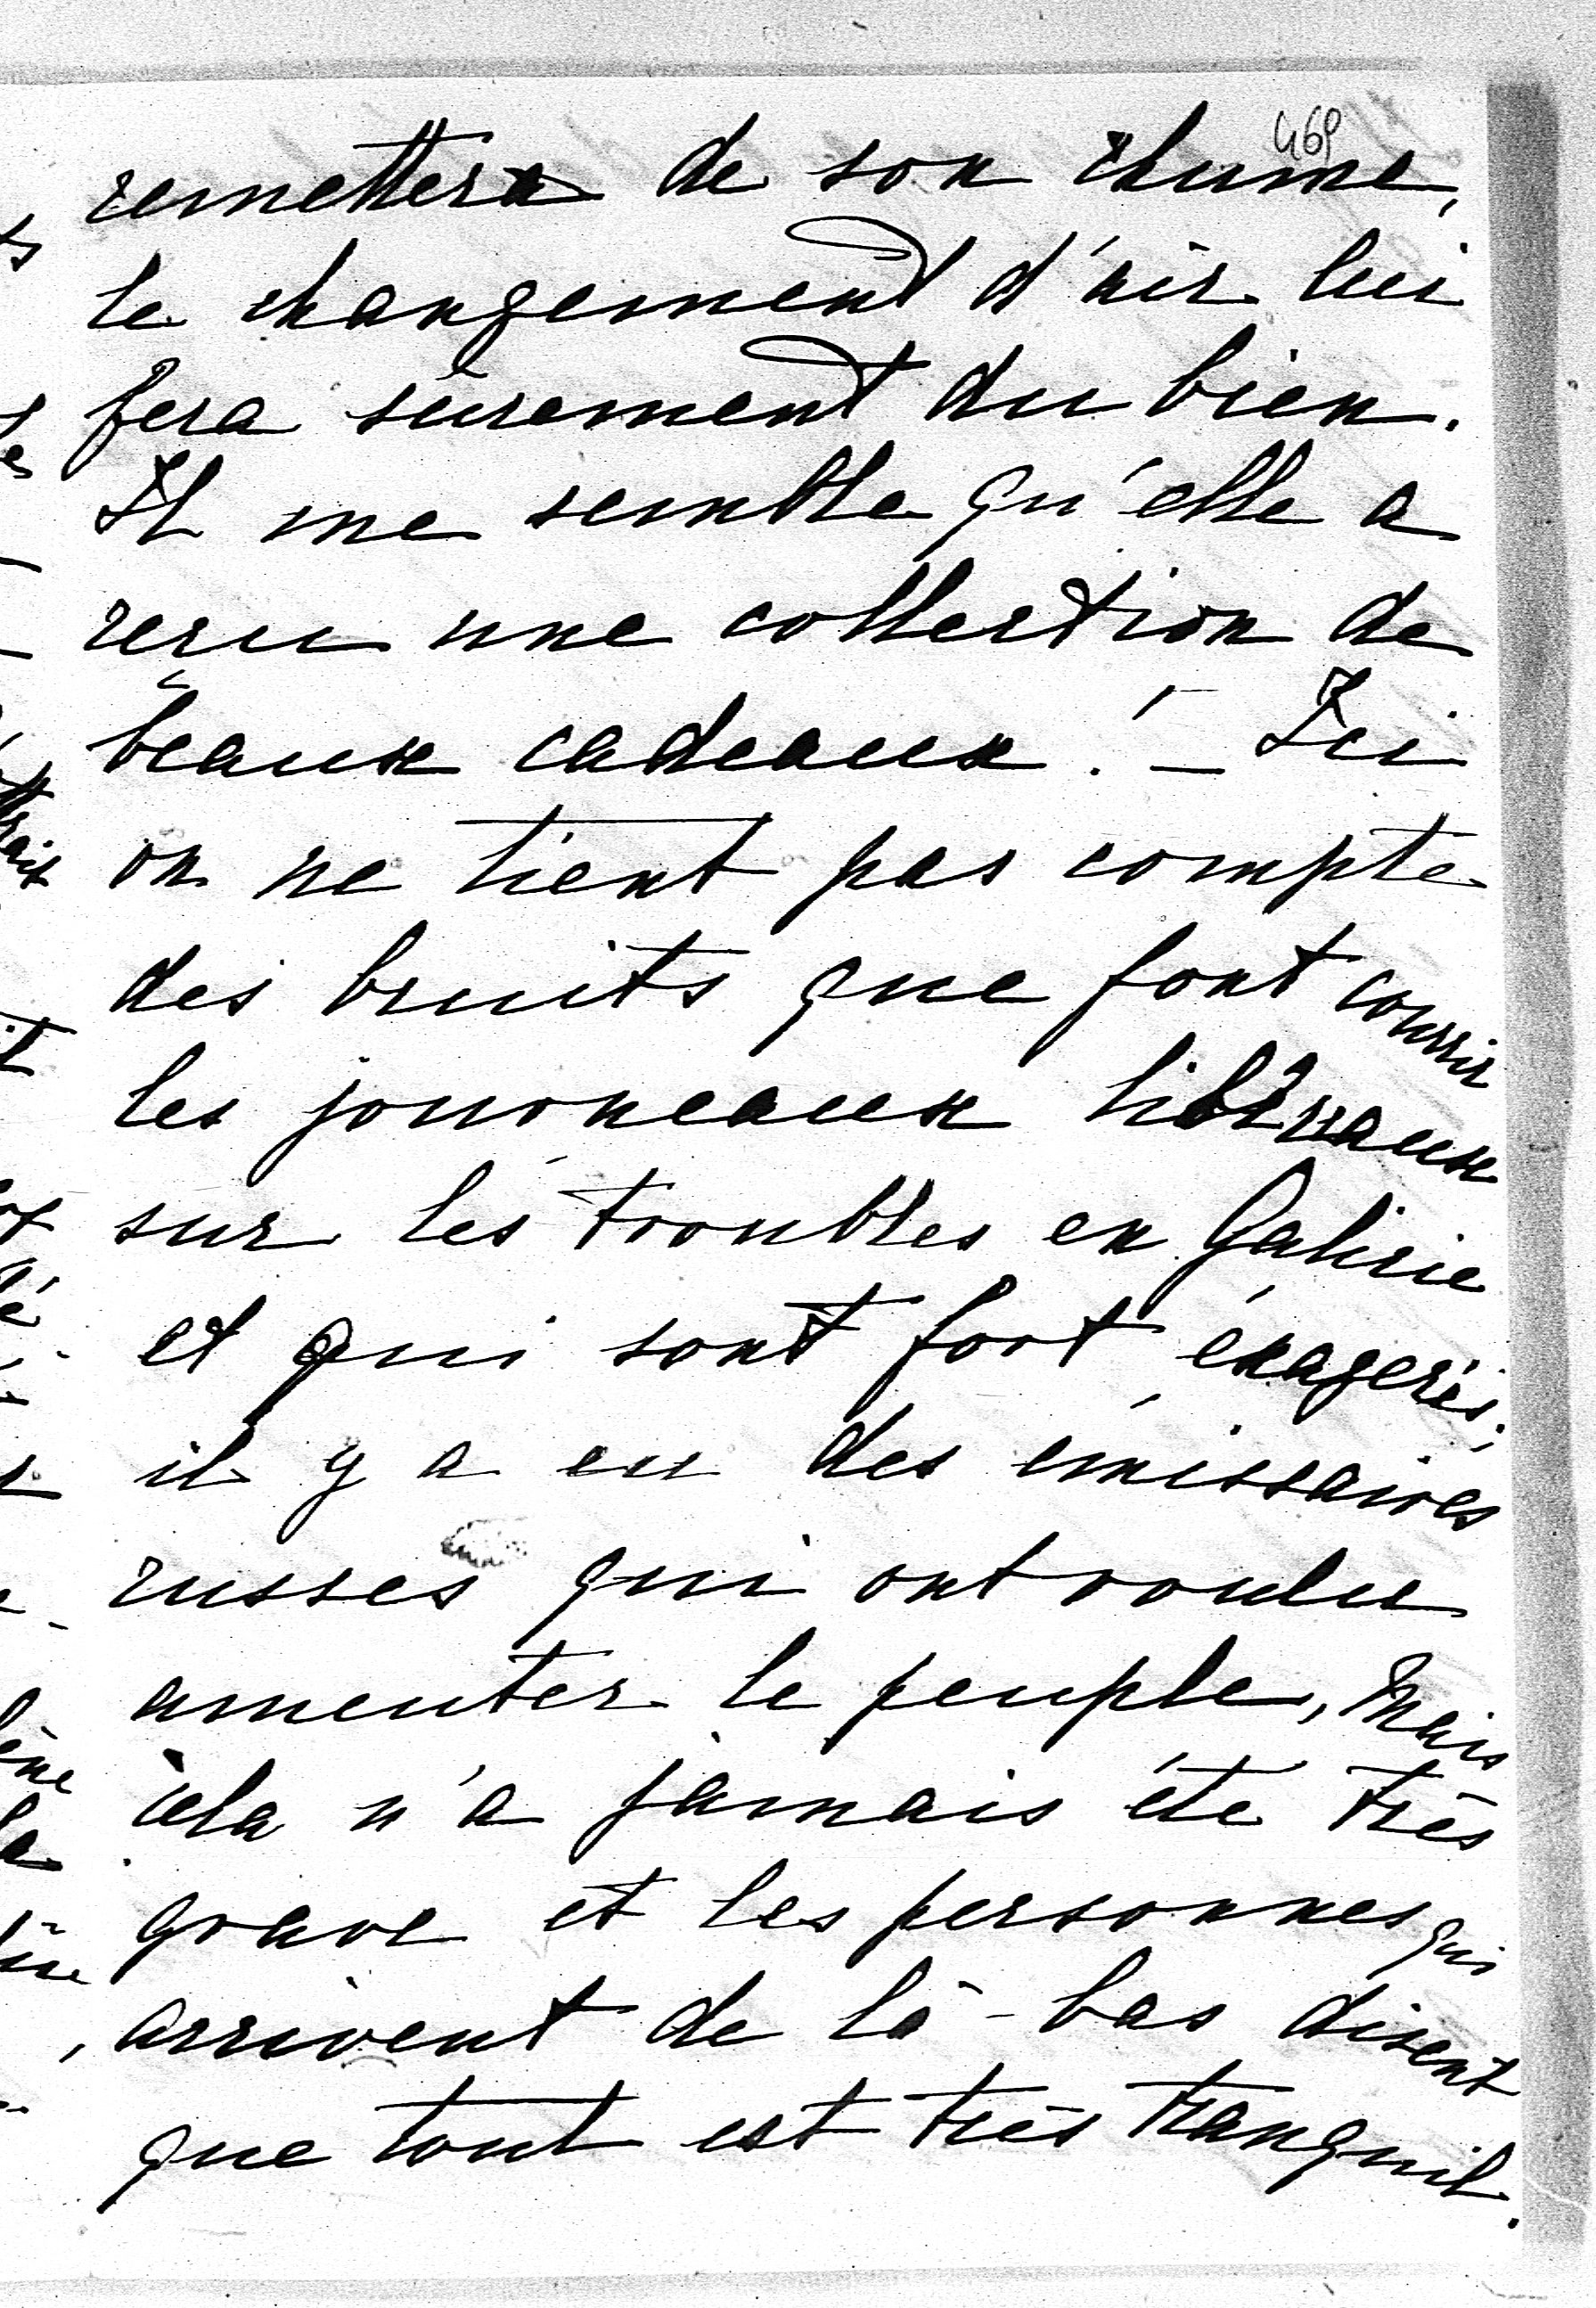 469
remettera de son rhume,
le changement d'air lui
fera sûrement du bien.
Il me semble qu'elle a
reçu une collection de
beaux cadeaux! – Ici
on ne tient pas compte
des bruits que font courrir
les journeaux libéraux
sur les troubles en Galicie
et qui sont fort éxagerés;
il y a eu des émissaires
russes qui ont voulu
ameuter le peuple, mais
cela n'a jamais été très
grave et les personnes qui
arrivent de là-bas disent
que tout est très tranquil.